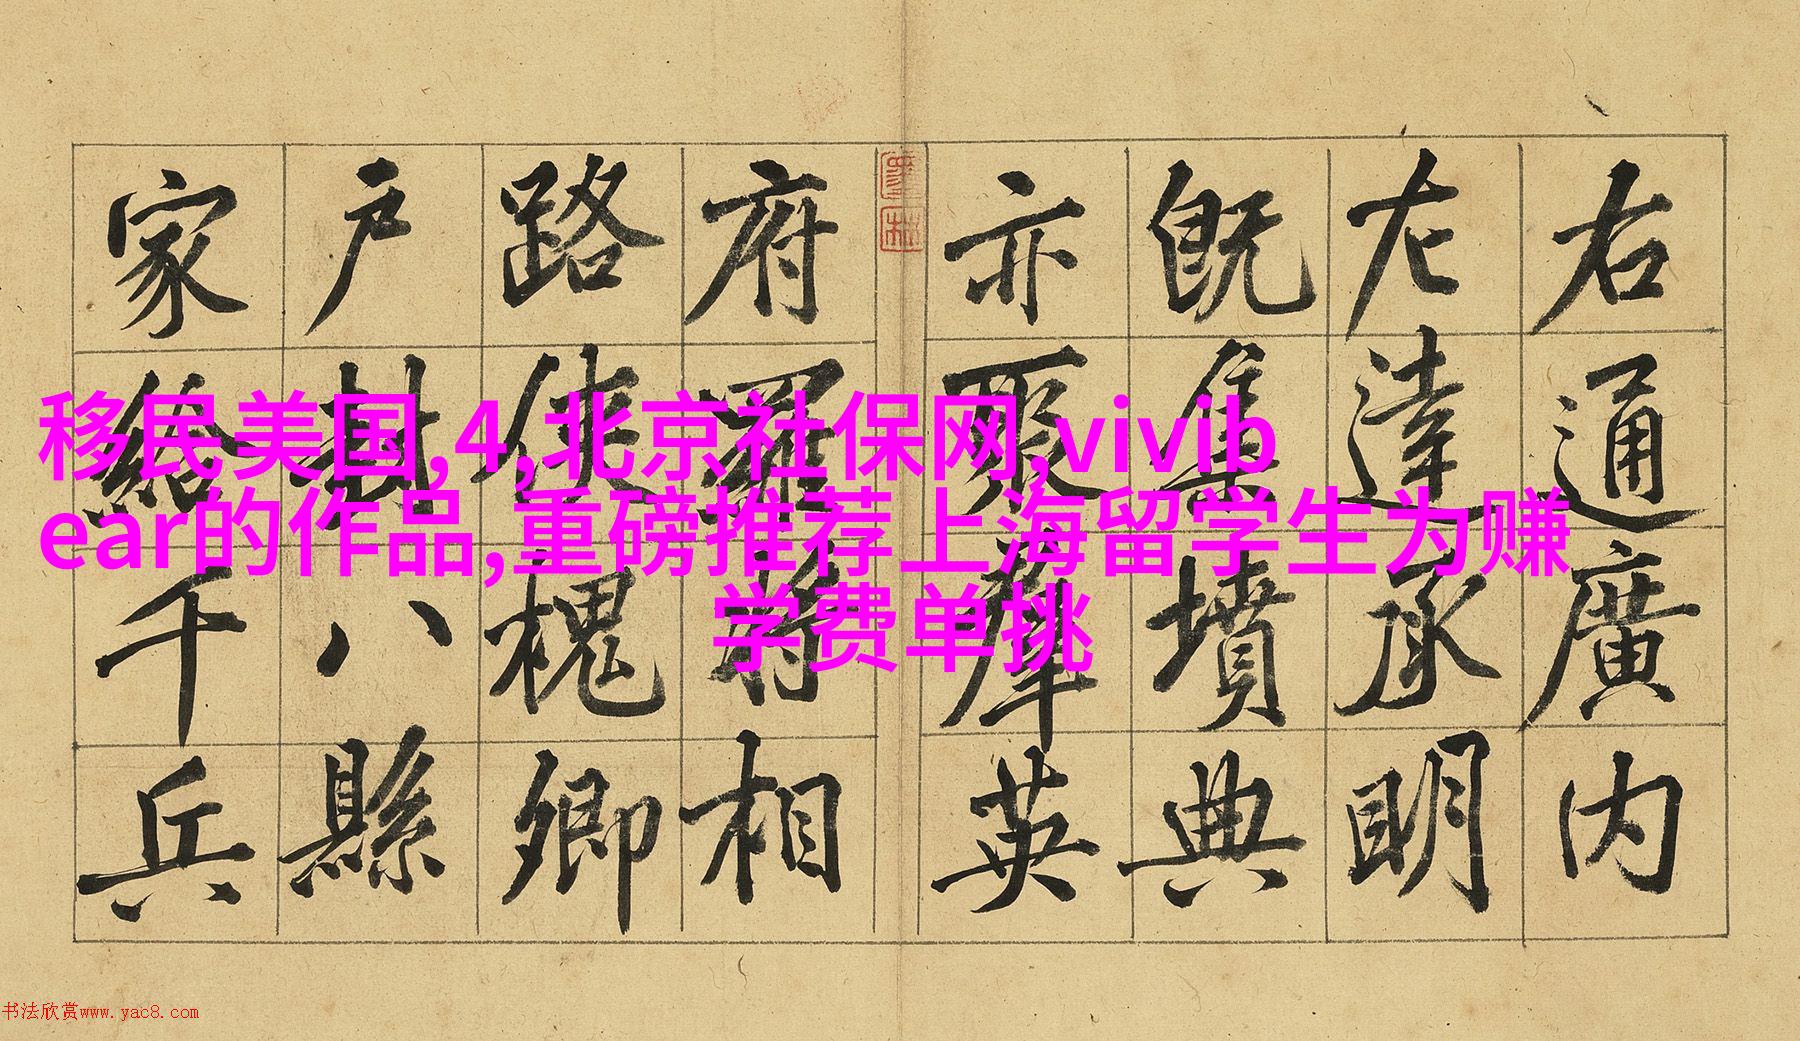 右通廣內
左達承明
既集墳典
亦聚羣英
府羅將相
路俠槐卿
戶封八縣
家給千兵
移民美国,4,北京社保网,vivib
ear的作品,重磅推荐上海留学生为赚
学费单挑
书法欣赏www.yac8.com